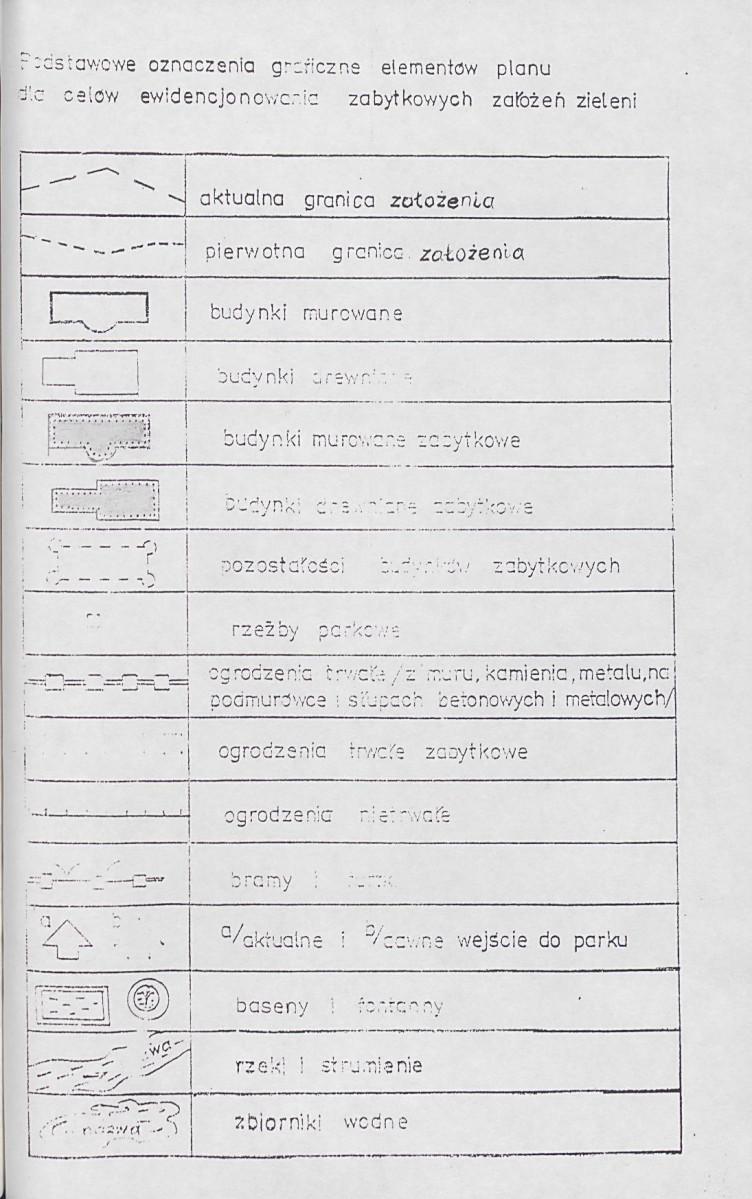 Podstawowe oznaczenia graficzne elementów planu
dla celów ewidencjonowania zabytkowych założeń zieleni
aktualna granica założenia
pierwotna granica założenia
budynki murowane
budynki drewniane
budynki murowane zabytkowe
budynki drewniane zabytkowe
pozostałości budynków zabytkowych
rzeźby parkowe
ogrodzenia trwałe /z muru, kamienia, metalu, na
podmurówce i słupach betonowych i metalowych/
ogrodzenia trwałe zabytkowe
ogrodzenia nietrwałe
bramy i
a b
a/aktualne i b/dawne wejście do parku
baseny i fontanny
wa
rzeki i strumienie
nazwa
zbiorniki wodne